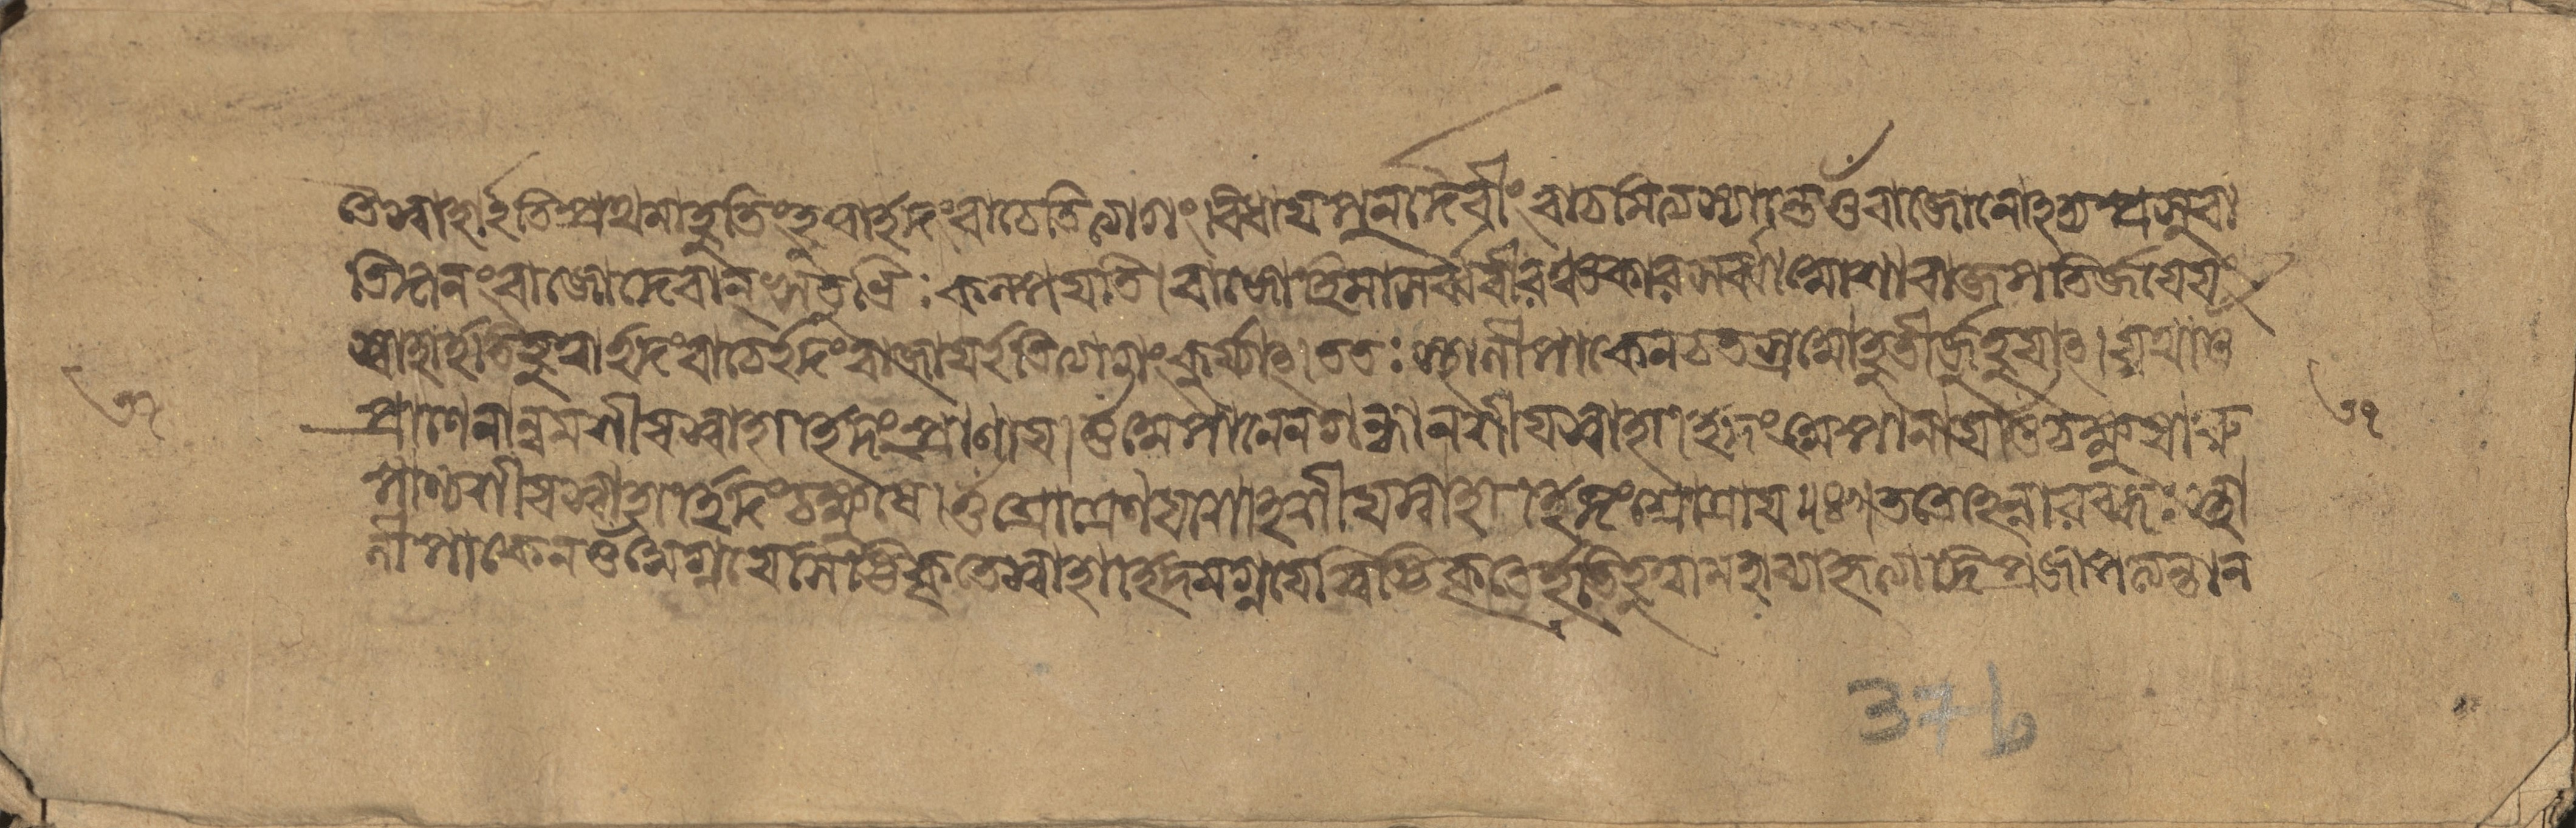 তেস্বাহা ইতি প্রথমাহুতিং হুত্বা ইদং বাচেতি ত্যাগং বিধায় পুনর্দেবীং বাচমিত্যস্যান্তে ওঁ বাজোনোহদ্য প্রসুবা
তিদানং বাজোদেবান্ ঋতুভিঃ কল্পয়াতি। বাজোহিমা সর্ব্ববীরং জজান সর্ব্বা আশা বাজপতির্জয়েয়ং
স্বাহা ইতি হুত্বা ইদং বাচে ইদং বাজায় ইতি ত্যাগং কুর্য্যাৎ। ততঃ স্থালীপাকেন চতস্র আহুতীর্জুহুয়াৎ। যথা ওঁ
প্রাণেনান্নমশীয় স্বাহা ইদং প্রাণায়। ওঁ অপানেন গন্ধানশীয় স্বাহা ইদং অপানায় ওঁ চক্ষুষা রূ
পাণ্যশীয় স্বাহা ইদং চক্ষুষে। ওঁ শ্রোত্রেণ যশোহশীয় স্বাহা ইদং শ্রোত্রায়॥ ততোহন্বারব্ধঃ স্থা
লীপাকেন ওঁ অগ্নয়ে স্বিষ্টিকৃতে স্বাহা ইদমগ্নয়ে স্বিষ্টিকৃতে ইতি হুত্বা মহাব্যাহৃত্যাদি প্রাজাপত্যন্তান
৩৭
৩৭
37b